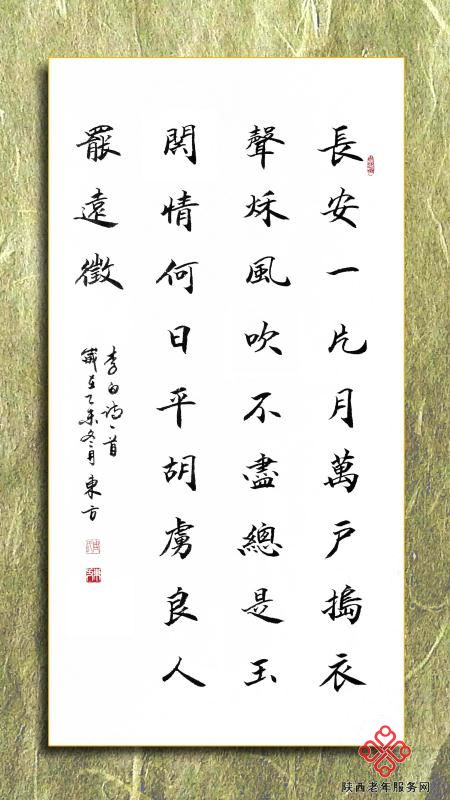 長安一片月萬戸搗衣
聲秌風吹不盡總是玉
関情何日平胡虜良人
罷遠徵
李白诗一首
歲在乙未冬月東方
陕西老年服务网